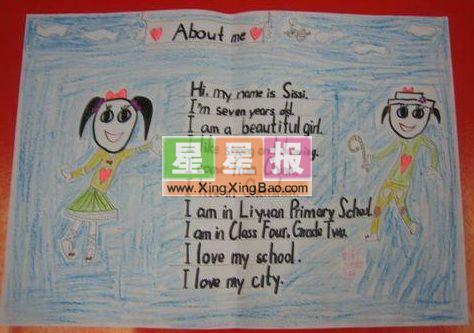 About me
Hi, my name is Sissi.
I'm seven years old.
I am a beautiful girl.
I like
星星报
www.XingXingBao.com
I am in Liyuan Primary School.
I am in Class Four, Grade Two.
I love my school.
I love my city.